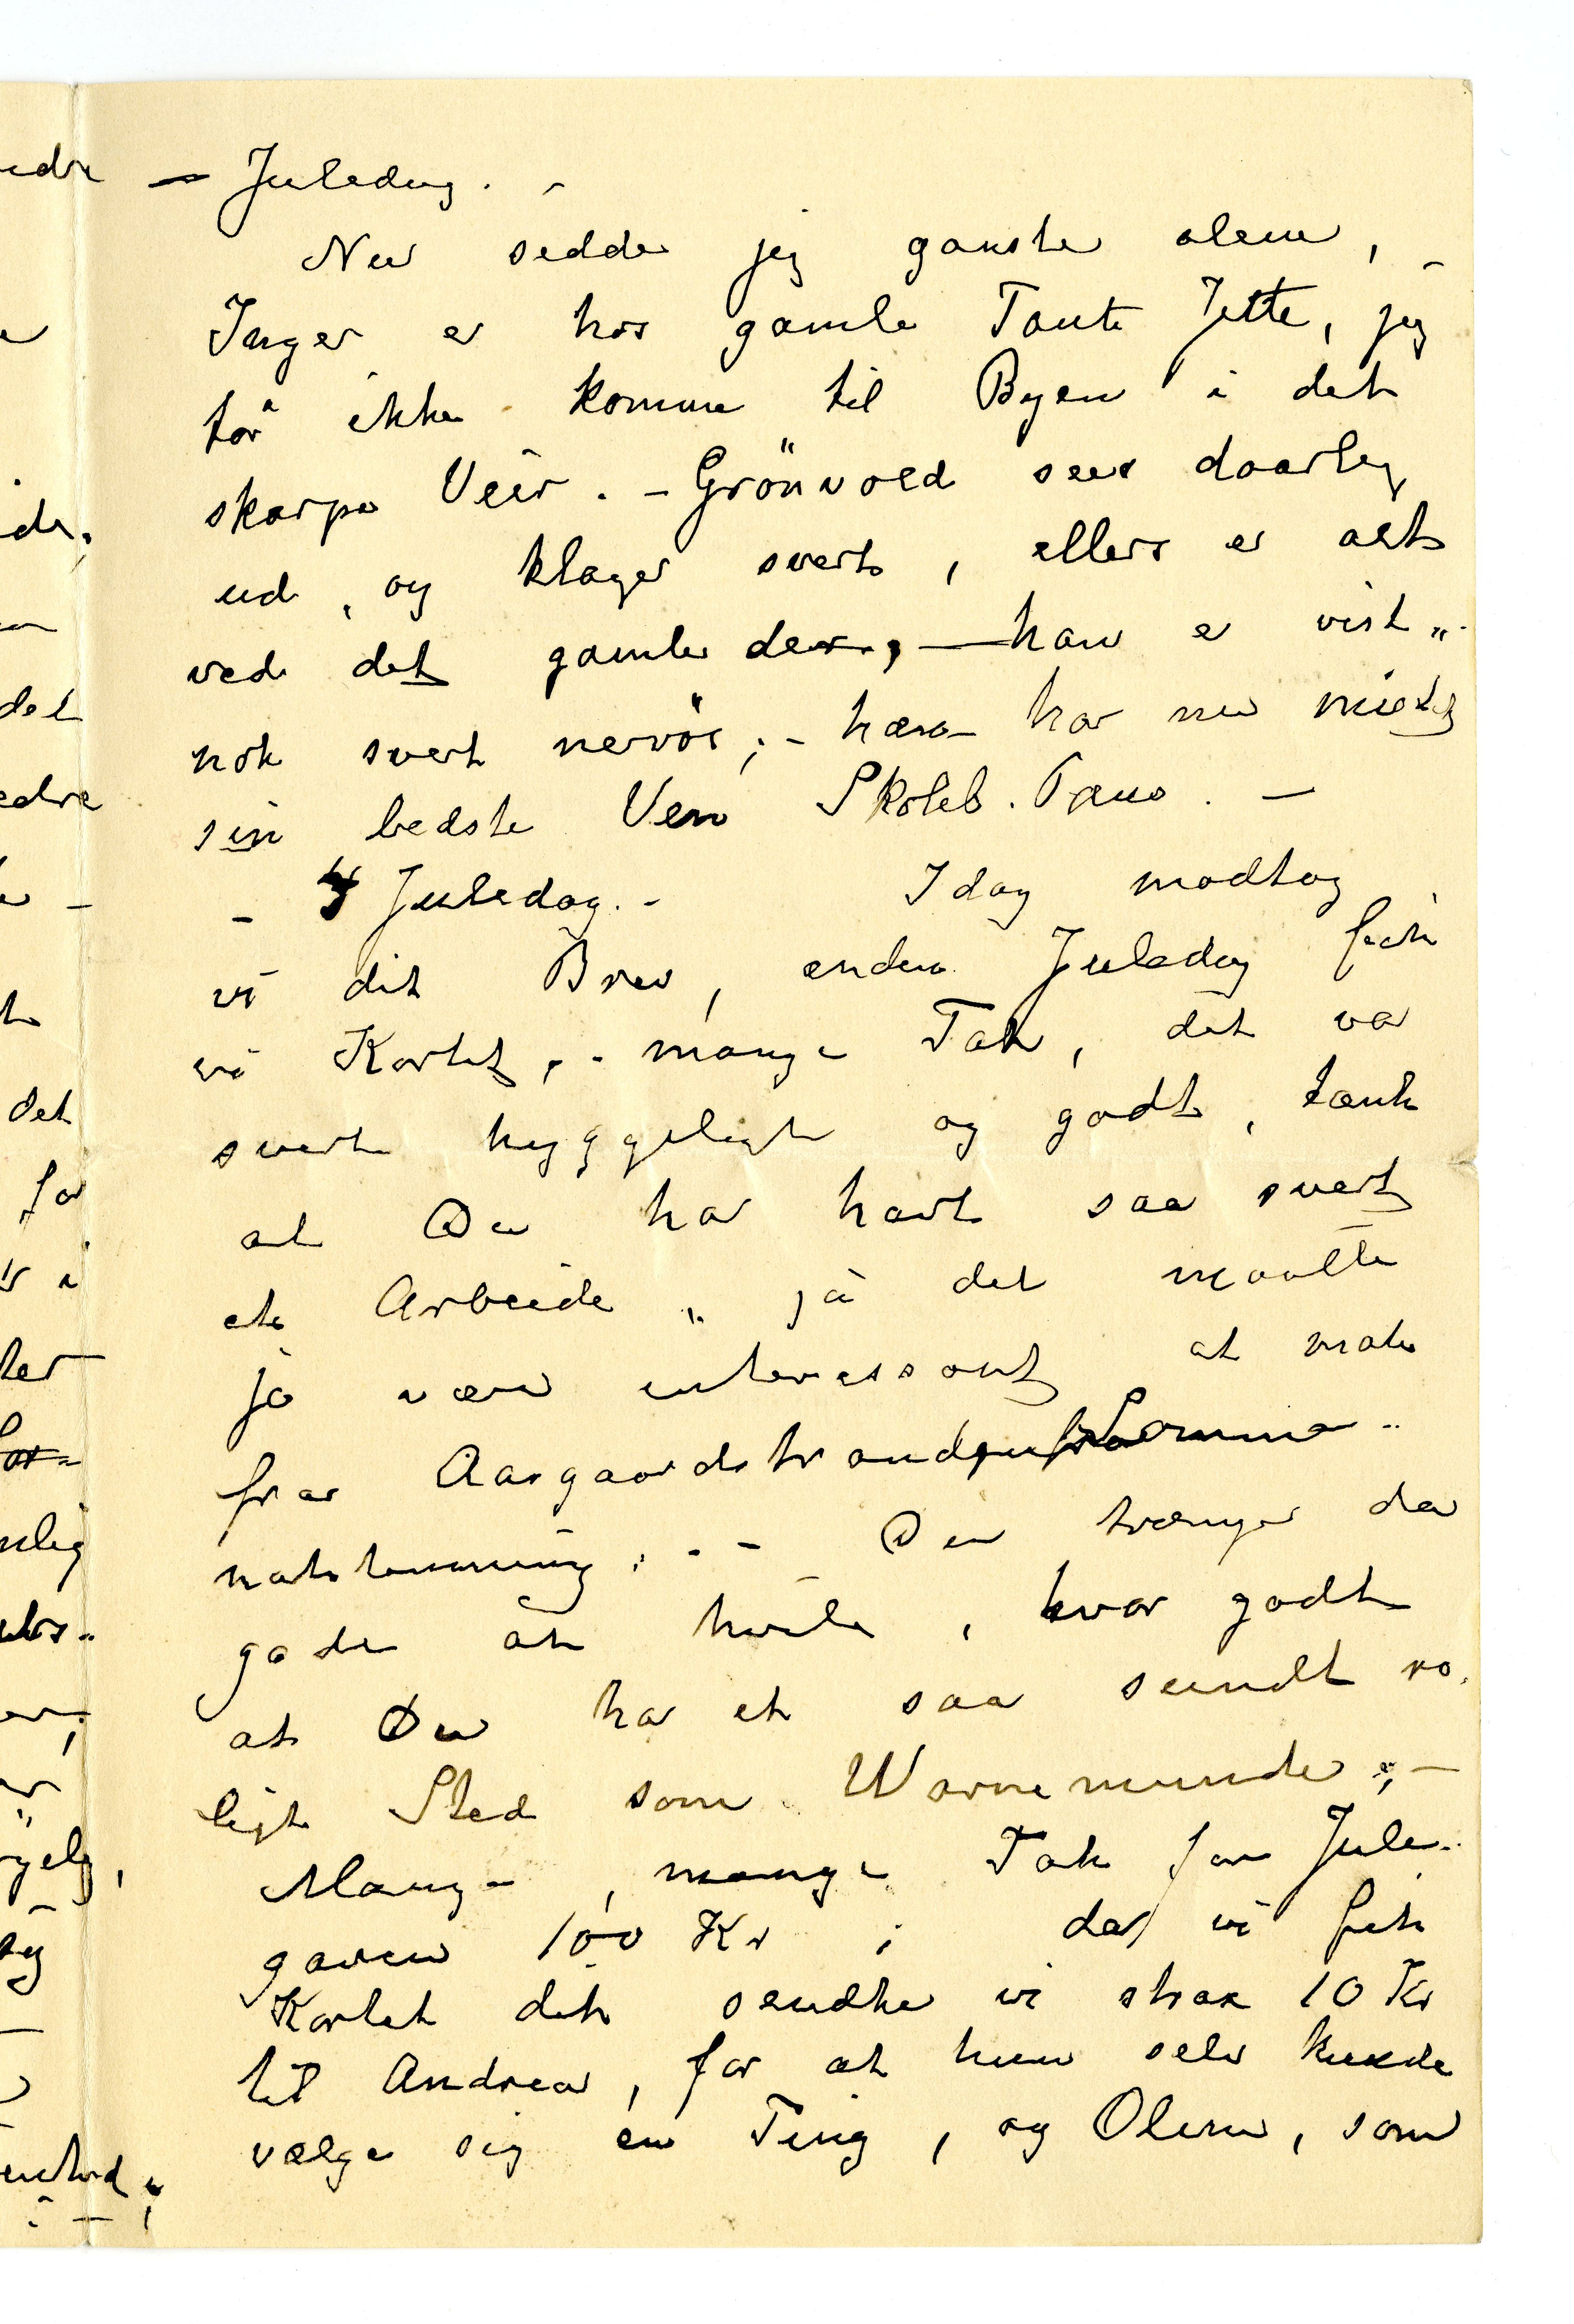 – Juledag. –
Nu sidder jeg ganske alene, –
Inger er hos gamle Tante Jette, jeg
tör ikke komme til Byen i det
skarpe Veir. – Grönvold seer daarlig
ud, og klager svert, ellers er alt
ved det gamle der, – han er vist„
nok svert nervös; – han har nu mistet
sin bedste Ven Skoleb. Paus. –
– 4 Juledag. – Idag modtog
vi dit Brev, anden Juledag fik
vi Kortet, – mange Tak, det var
svert hyggeligt og godt, tænk
at Du har havt saa svert
et Arbeide„ ja det maatte
ja være interessant at male
fra Aasgaardstrand Sommer„
natstemning; - – Du trænger da
gode at hvile, hvor godt
at Du har et saa sundt ro„
ligt Sted som Warnemunde; –
Mange, mange Tak for Jule„
gaven 100 Kr ; da vi fik
Kortet dit sendte vi strax 10 Kr
til Andrea, for at hun selv kunde
vælge sig en Ting, og Olene, som
edre
ide;
det
edre
det
for
tet
nlig